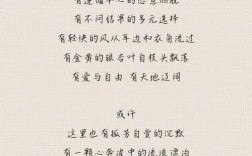 有遵循中心的恣意洒脱
有不问结果的多元选择
有轻快的风从耳边和衣角流过
有金黄的银杏叶自枝头飘落
有爱与自由 有天地辽阔
或许
这里也有孤芳自赏的沉默
有一颗心奔波中的流浪漂泊